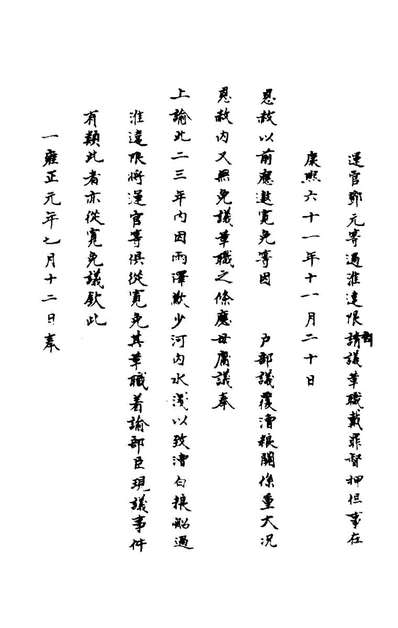 運官鄧元等過淮違限請議革職戴罪督押但事在
康熙六十一年十一月二十日
恩赦以前應邀寬免等因 戶部議覆漕粮關係重大況
恩赦內又無免議革職之條應毋庸議奉
上諭此二三年內因雨澤歉少河內水淺以致漕白粮船過
淮違限將運官等俱從寬免其革職著諭部臣現議事件
有類此者亦從寬免議欽此
一雍正元年七月十二日奉